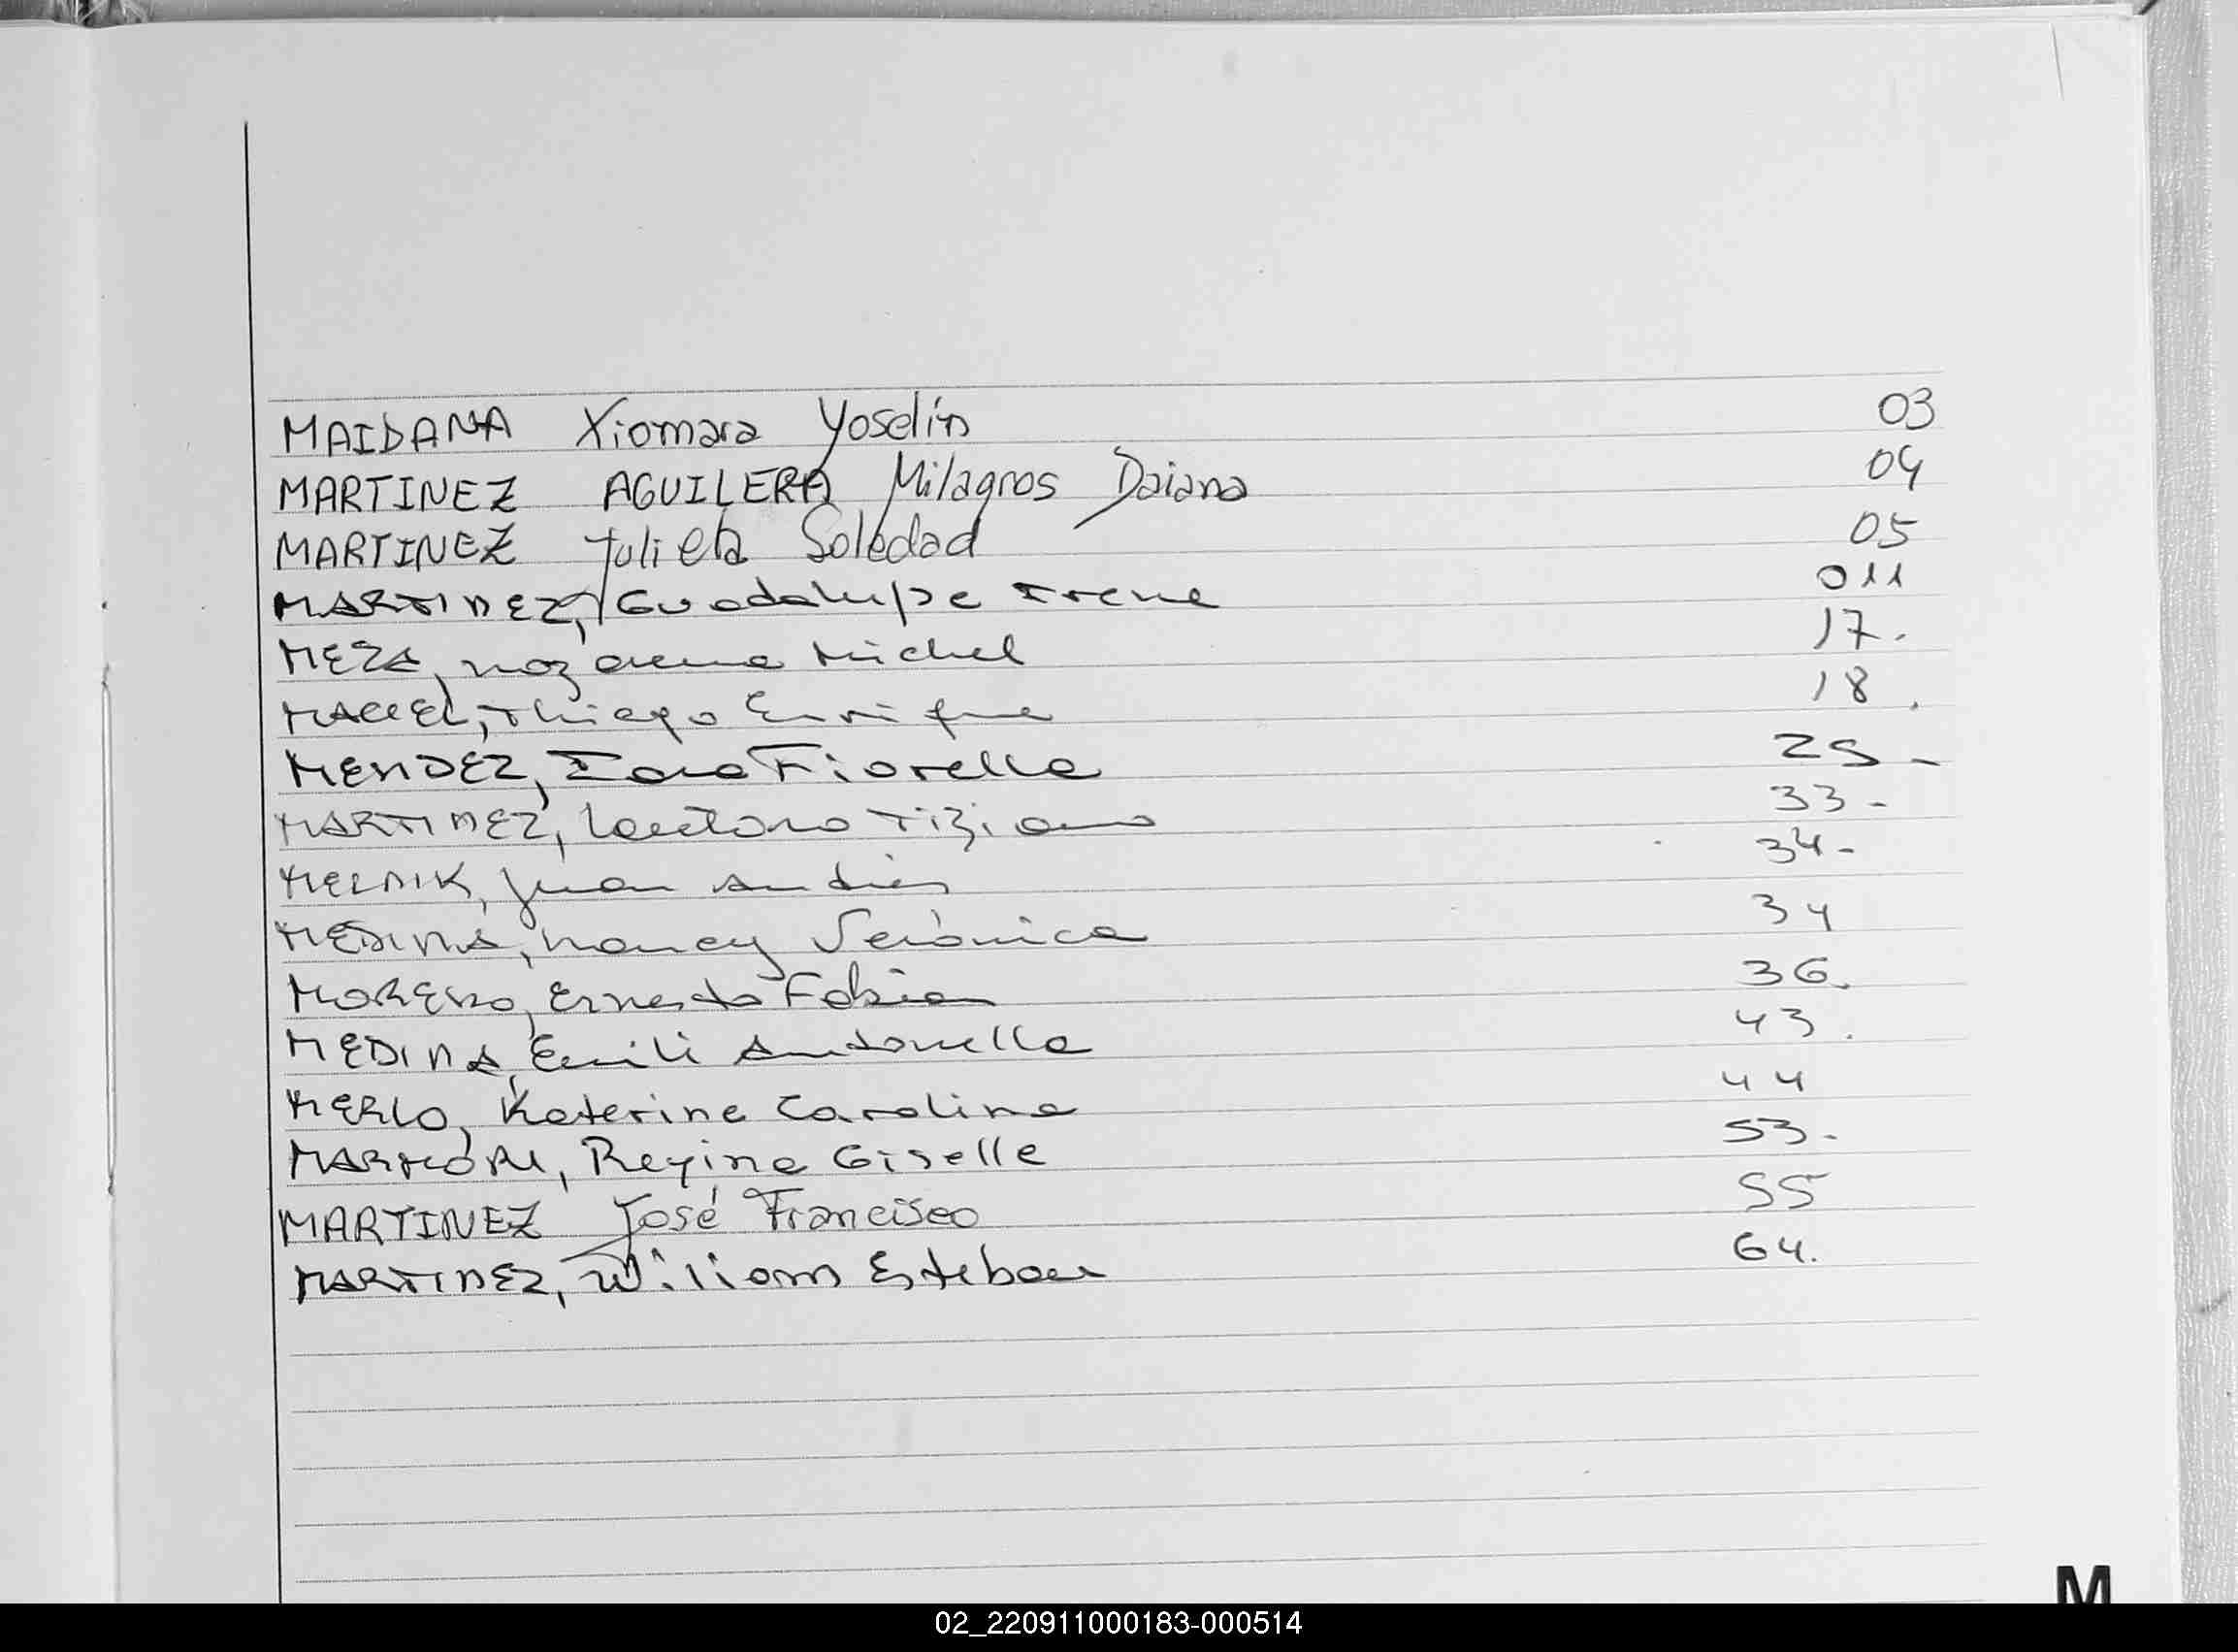 MAIDANA Xiomara Yoselin 03
MARTINEZ AGUILERA Milagros Daiana 04
MARTINEZ Julieta Soledad 05
MARTINEZ, Guadalupe Irene 011
MEZA, nazarena Michel 17.
MACIEL, Thiago Enrique 18.
MENDEZ, Iara Fiorella 25-
MARTINEZ, Lautaro Tiziano 33-
MELNIK, Juan Andrés 34-
MEDINA, Nancy Verónica 34
MORENO, Ernesto Fabian 36.
MEDINA, Emili Antonella 43.
MERLO, Katerine Carolina 44
Regina Giselle 53.
MARTINEZ José Francisco 55
MARTINEZ, Wiliams Esteban 64.
M
02_220911000183-000514